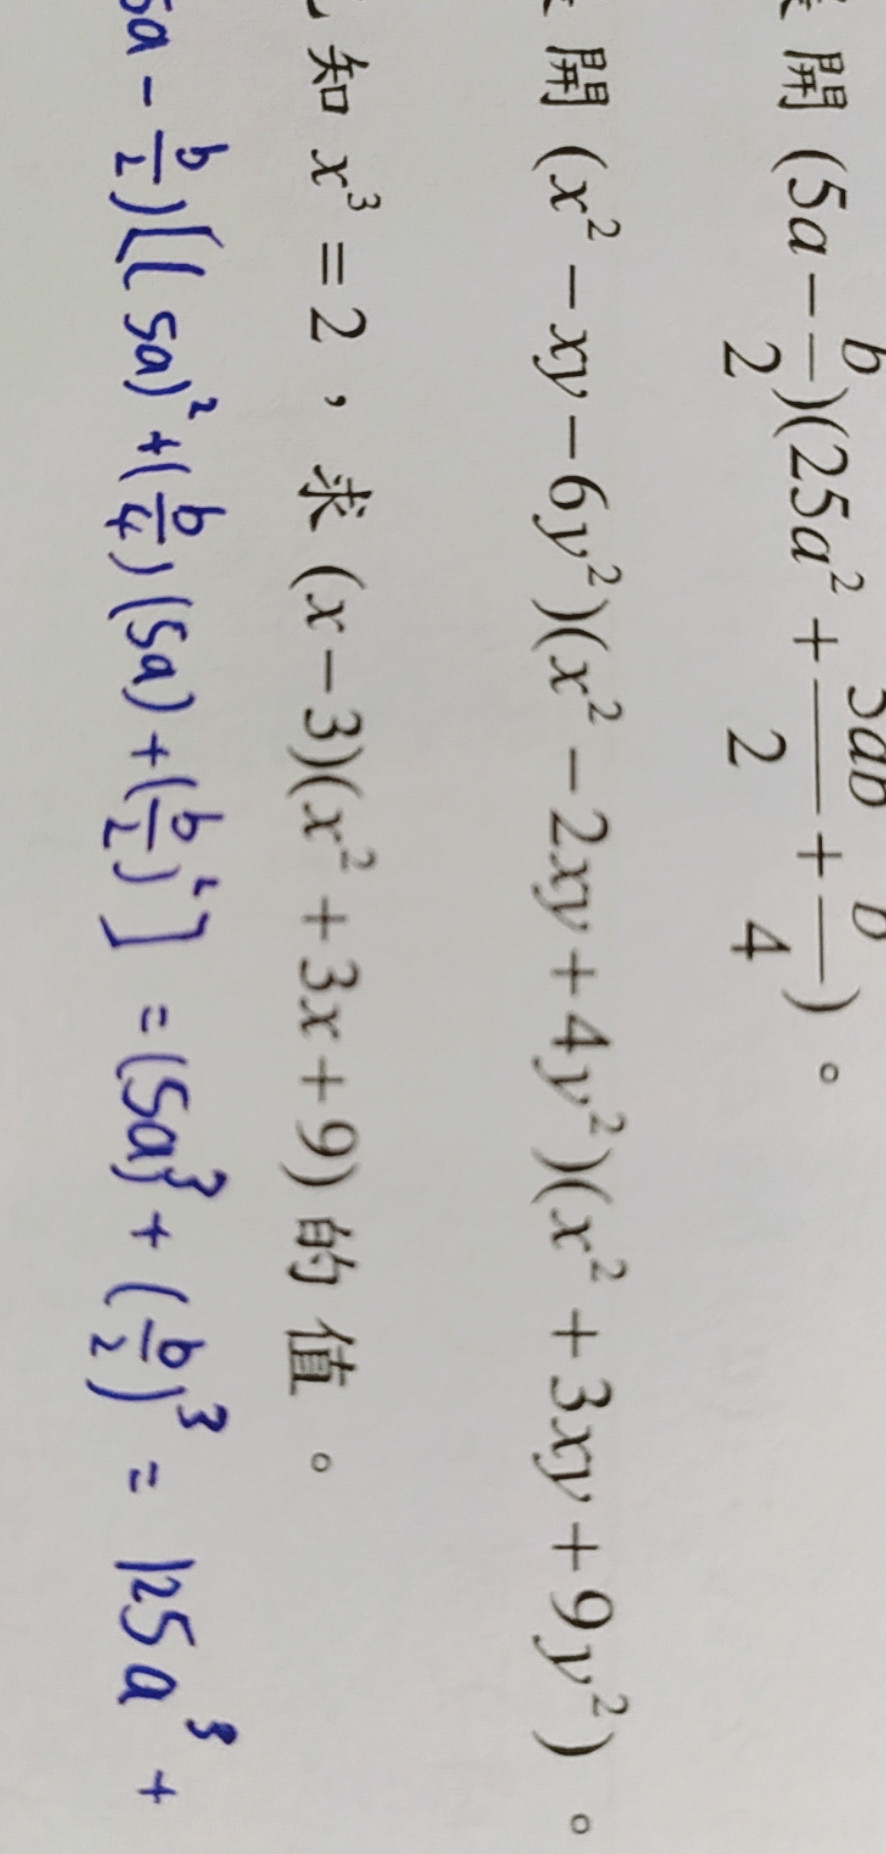 開 (5a − b/2)(25a² + 5ab/2 + b/4)。
開 (x² − xy − 6y²)(x² − 2xy + 4y²)(x² + 3xy + 9y²)。
知 x³ = 2，求 (x − 3)(x² + 3x + 9) 的值。
5a − b/2)[(5a)² + (b/4)(5a) + (b/2)²] = (5a)³ + (b/2)³ = 125a³ +